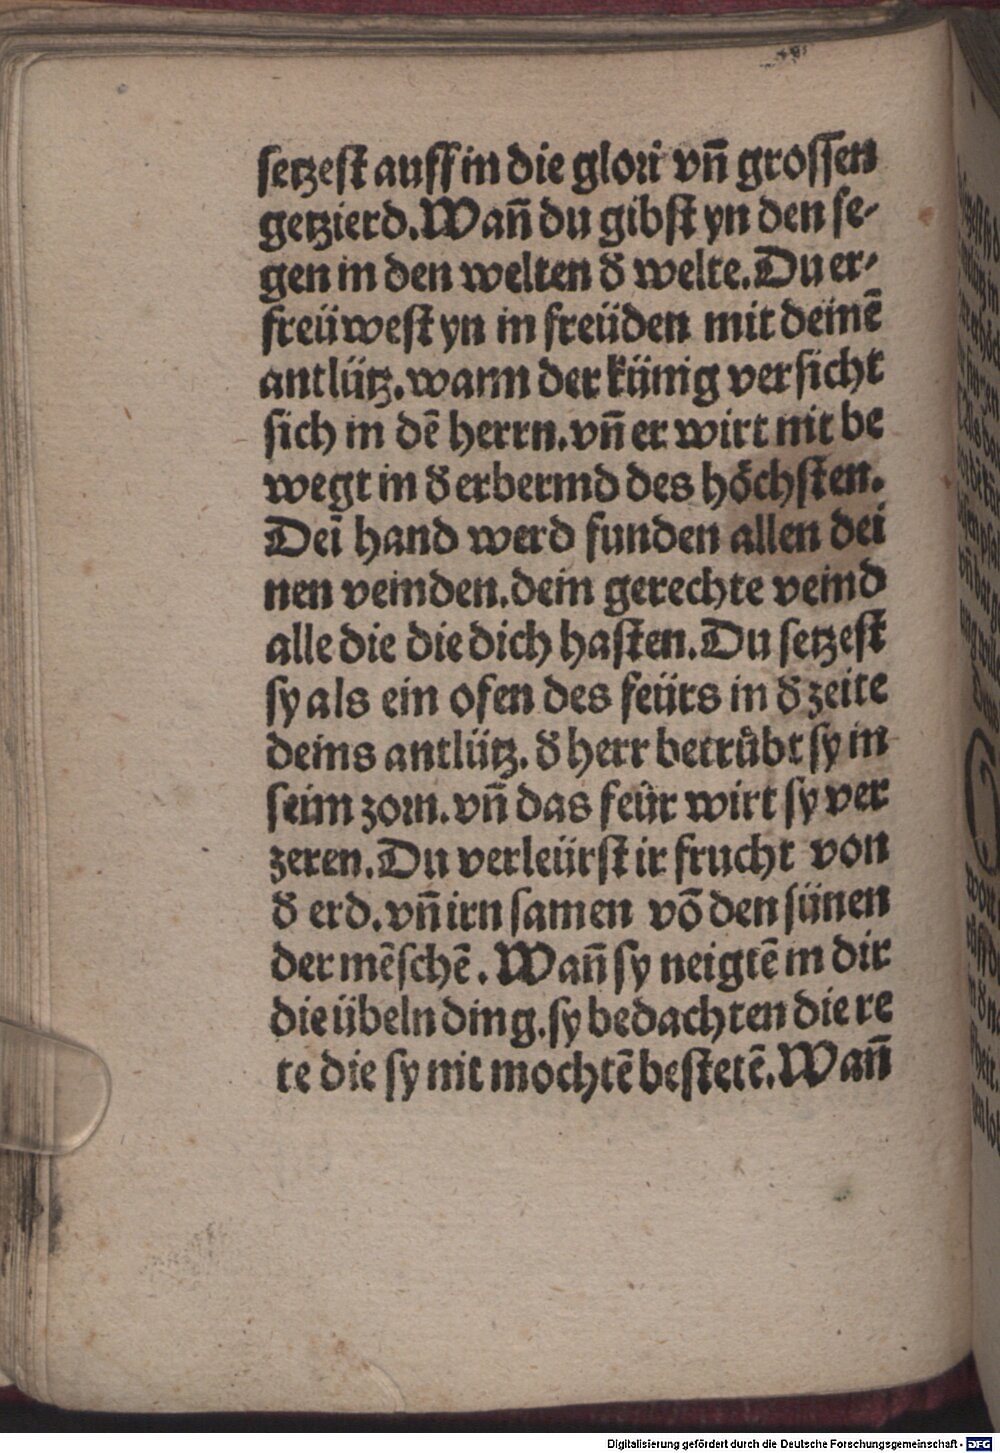 setzest auff in die glori vn̄ grossen
getzierd. Wan̄ du gibst yn den se-
gen in den welten d̕ welte. Du er-
freüwest yn in freüden mit deinē
antlütz. wann der künig versicht
sich in dē herrn. vn̄ er wirt nit be
wegt in d̕ erbermd des höchsten.
Dei̅ hand werd funden allen dei
nen veinden. dein gerechte veind
alle die die dich hasten. Du setzest
sy als ein ofen des feürs in d̕ zeite
deins antlütz. d̕ herr betrübt sy in
seim zorn. vn̄ das feür wirt sy ver
zeren. Du verleürst ir frucht von
d̕ erd. vn̄ irn samen vō den sünen
der mēschē. Wan̄ sy neigtē in dir
die übeln ding. sy bedachten die re
te die sy nit mochtē bestetē. Wan̄
Digitalisierung gefördert durch die Deutsche Forschungsgemeinschaft - DFG